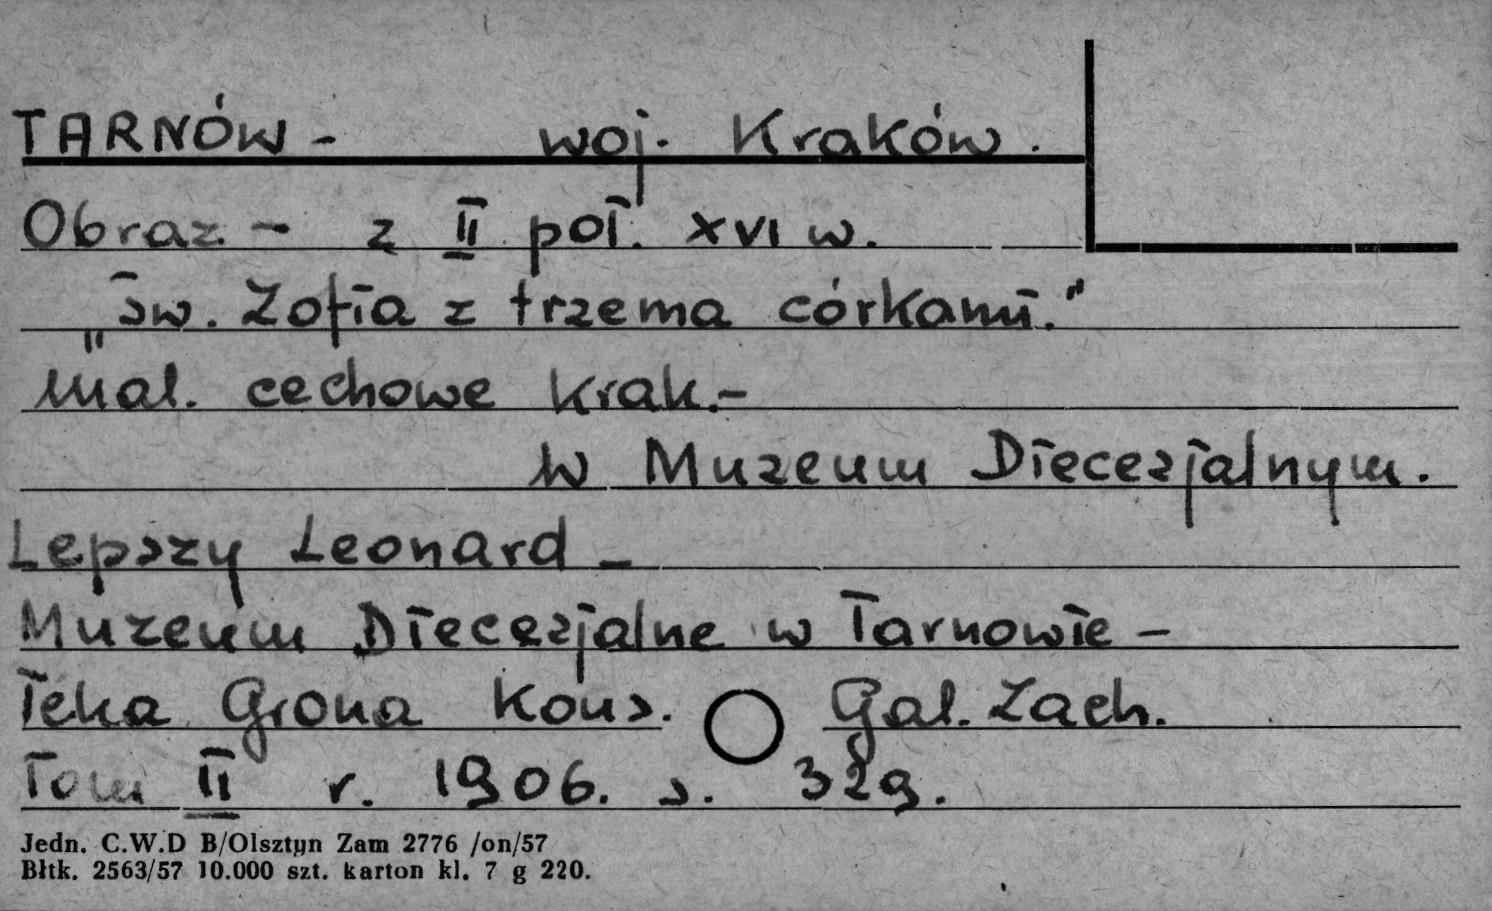 TARNÓW - woj. Kraków.
Obraz - z II poł. XVI w.
"Św. Zofia z trzema córkami."
mal. cechowe krak. -
w Muzeum Diecezjalnym.
Lepszy Leonard -
Muzeum Diecezjalne w Tarnowie -
Teka Grona Kons. Gal. Zach.
Tom II r. 1906. s. 329.
Jedn. C.W.D B/Olsztyn Zam 2776 /on/57
Błtk. 2563/57 10.000 szt. karton kl. 7 g 220.